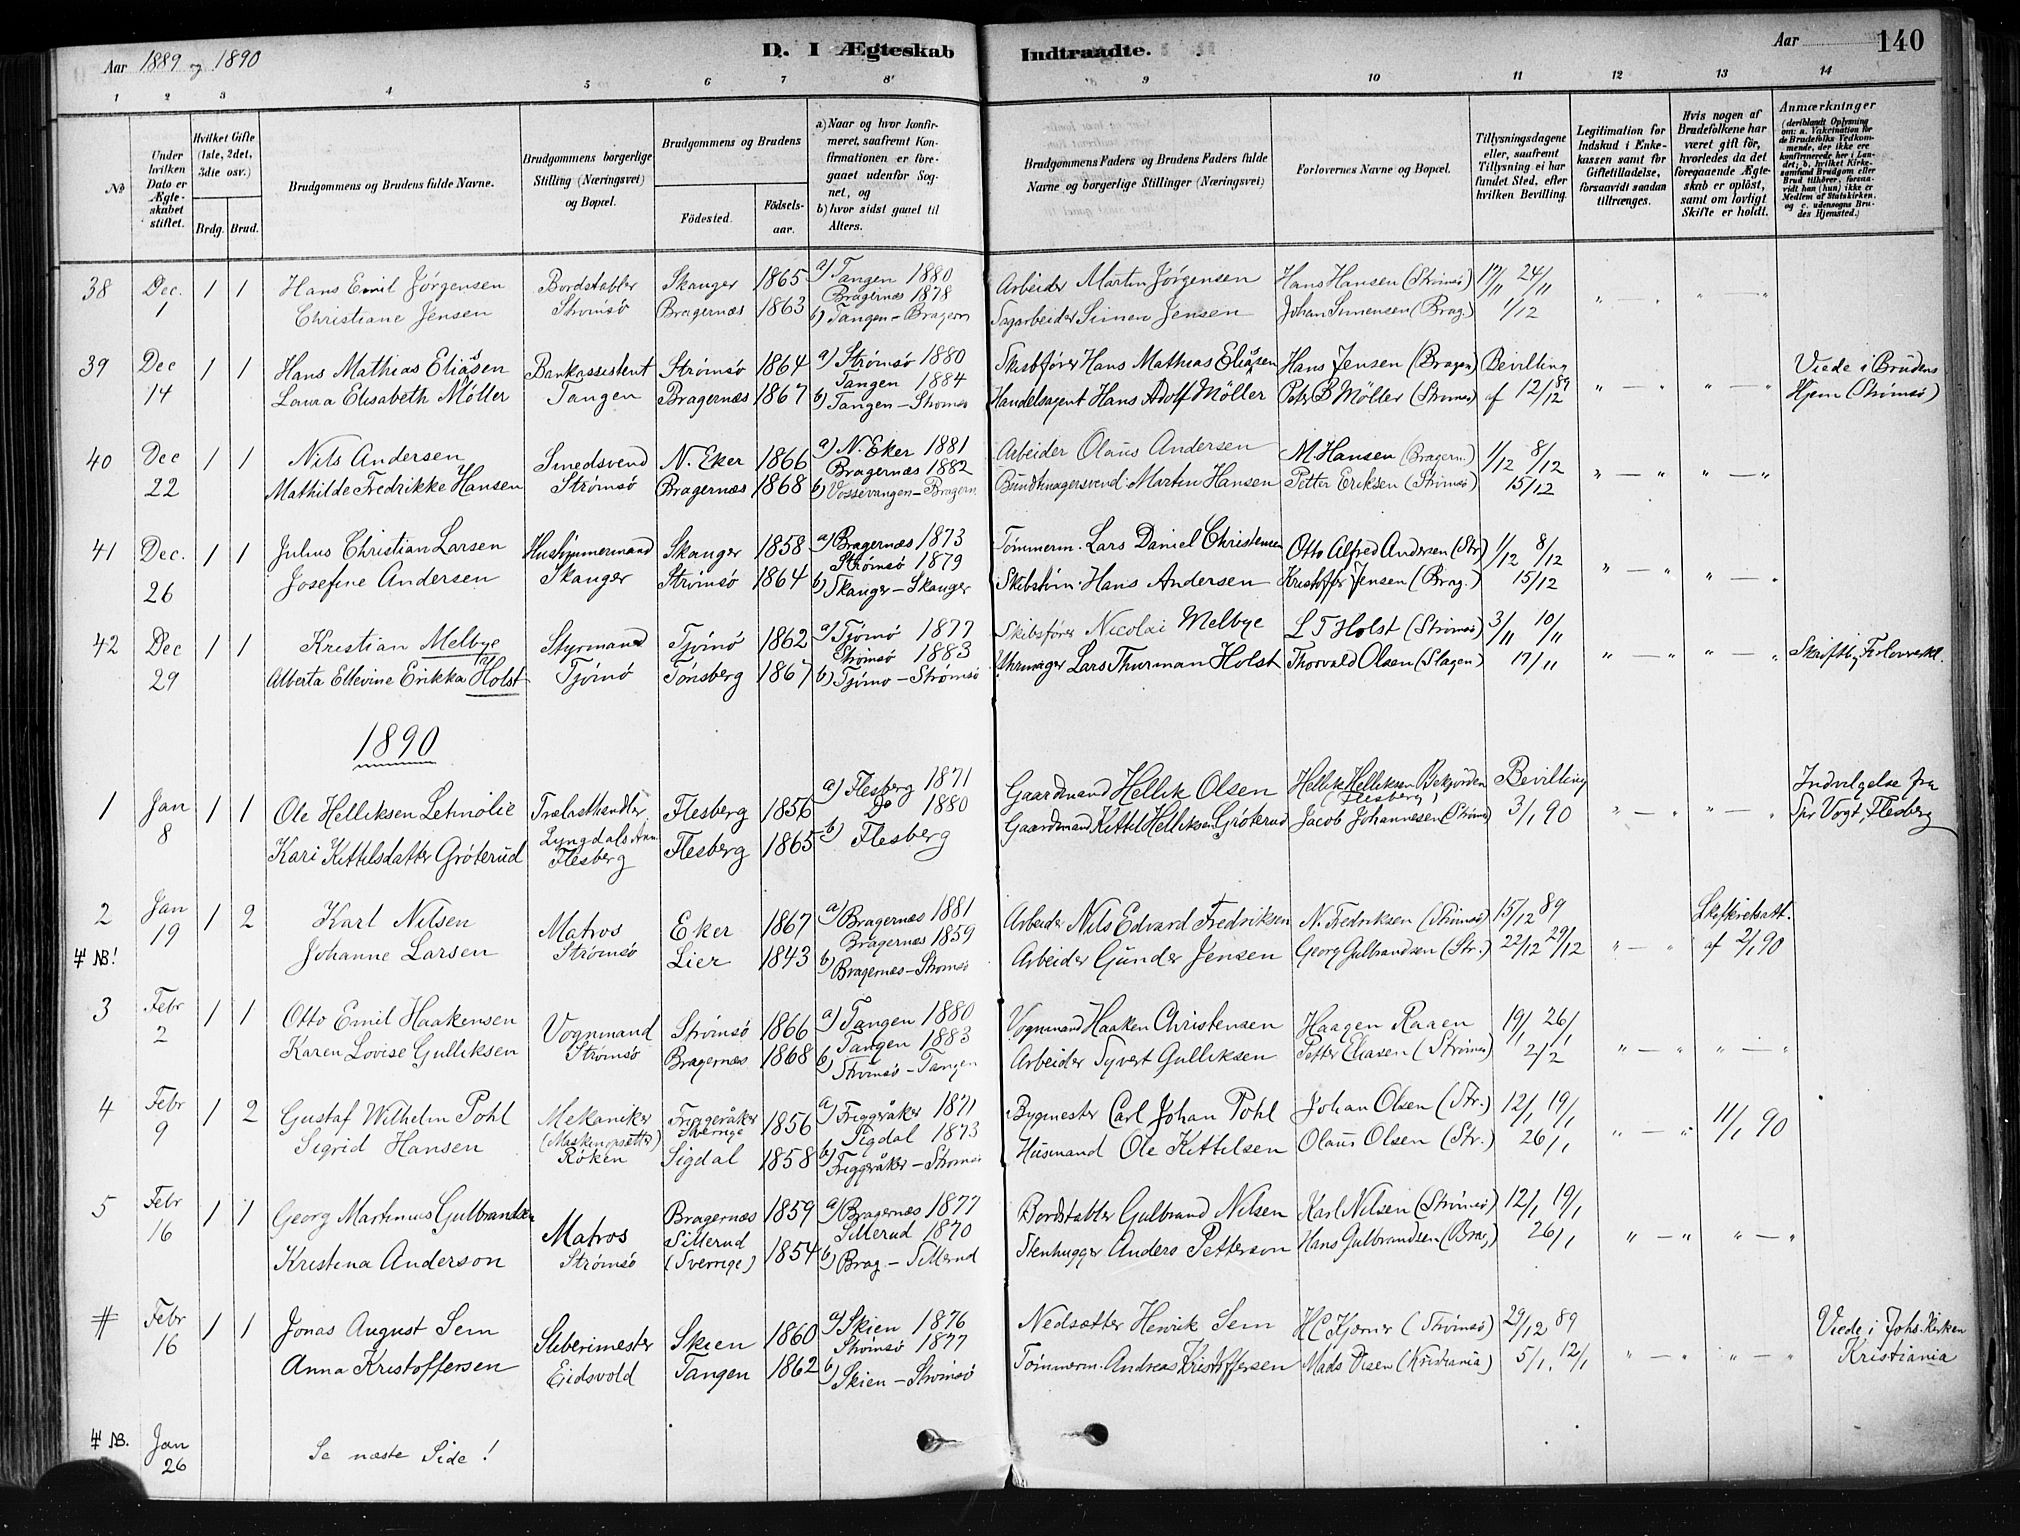 Aar 1889 og 1890
D. I Ægteskab Indtraadte.
Aar 140
1 2 3 4 5 6 7 8 9 10 11 12 13 14
No
Under hvilken Dato er Ægteskabet stiftet.
Hvilket Gifte (1ste, 2det, 3die osv.)
Brdg. Brud.
Brudgommens og Brudens fulde Navne.
Brudgommens borgerlige Stilling (Næringsvei) og Bopæl.
Brudgommens og Brudens
Fødested.
Fødsels-aar.
a) Naar og hvor konfirmeret, saafremt Konfirmationen er foregaaet udenfor Sognet, og
b) hvor sidst gaaet til Alters.
Brudgommens Faders og Brudens Faders fulde Navne og borgerlige Stillinger (Næringsvei)
Forlovernes Navne og Bopæl.
Tillysningsdagene eller, saafremt Tillysning ei har fundet Sted, efter hvilken Bevilling.
Legitimation for Indskud i Enkekassen samt for Giftetilladelse, forsaavidt saadan tiltrænges.
Hvis nogen af Brudefolkene har været gift før, hvorledes da det foregaaende Ægteskab er opløst, samt om lovligt Skifte er holdt.
Anmærkninger (deriblandt Oplysning om: a. Vakcination for de Brudefolks Vedkommende, der ikke ere konfirmerede her i Landet; b. hvilket Kirkesamfund Brudgom eller Brud tilhører, forsaavidt han (hun) ikke er Medlem af Statskirken. og c. udensogns Brudes Hjemsted.)
38 Dec. 1 1 1 Hans Emil Jørgensen Bordstabler Skauger 1865 a) Tangen 1880 Arbeider Martin Jørgensen Hans Hansen (Strømsø) 17/11 24/11
Christiane Jensen Strømsø Bragernæs 1863 Bragernæs 1878 b) Tangen - Bragern Sagarbeider Simen Jensen Johan Simensen (Brag.) 1/12 " — " " — "
39 Dec 14 1 1 Hans Mathias Eliasen Bankassistent Strømsø 1864 a) Strømsø 1880 Skibsfører Hans Mathias Eliasen Hans Jensen (Bragen) Bevilling Viede i Brudens
Laura Elisabeth Möller Tangen Bragernæs 1867 Tangen 1884 b) Tangen - Strømsø Handelsagent Hans Adolf Möller Petr B Möller (Strømsø) af 12/12 89 " — " " — " Hjem (Strømsø)
40 Dec 22 1 1 Nils Andersen Smedsvend N. Eker 1866 a) N. Eker 1881 Arbeider Olaus Andersen M. Hansen (Bragern.) 1/12 8/12
Mathilde Fredrikke Hansen Strømsø Bragernæs 1868 Bragernæs 1882 b) Vossevangen - Bragern Bundtmagersvend Martin Hansen Petter Eriksen (Strømsø) 15/12 " — " " — "
41 Dec. 26 1 1 Julius Christian Larsen Hustømmermand Skauger 1858 a) Bragernæs 1873 Tømmerm. Lars Daniel Christensen Otto Alfred Andersen (Str) 1/12 8/12
Josefine Andersen Skauger Strømsø 1864 Strømsø 1879 b) Skauger - Skauger Skibstøm. Hans Andersen Kristoffer Jensen (Brag.) 15/12 " — " " — "
42 Dec 29 1 1 Kristian Melbye Styrmand Tjømø 1862 a) Tjømø 1877 Skibsfører Nicolai Melbye L T Holst (Strømsø) 3/11 10/11
Alberta Ellevine Erikka Holst Tjømø Tønsberg 1867 Strømsø 1883 b) Tjømø - Strømsø Uhrmager Lars Thurman Holst Thorvald Olsen (Slagen) 17/11 " — " " — " Skriftlig Forlovererkl.
1890
1 Jan 8 1 1 Ole Helliksen Letmolie Trælasthandler Flesberg 1856 a) Flesberg 1871 Gaardmand Hellik Olsen Hellik Helliksen Bekjorden (Flesberg) Bevilling Indvilgelse fra
Kari Kittilsdatter Grøterud Lyngdals Ann. Flesberg Flesberg 1865 Do 1880 b) Flesberg Gaardmand Kittil Helliksen Grøterud Jacob Johannesen (Strømsø) 3/1 90 " — " " — " Spr Vogt, Flesberg
2 Jan 19 1 2 Karl Nilsen Matros Eker 1867 a) Bragernæs 1881 Arbeider Nils Edvard Fredriksen N. Fredriksen (Strømsø) 15/12 89 Skifteretsatt.
# NB! Johanne Larsen Strømsø Lier 1843 Bragernæs 1859 b) Bragernæs - Strømsø Arbeider Gunder Jensen Georg Gulbrandsen (Str.) 22/12 29/12 " — " af 2/1 90
3 Febr 2 1 1 Otto Emil Haakensen Vognmand Strømsø 1866 a) Tangen 1880 Vognmand Haaken Christensen Haagen Raaen 19/1 26/1
Karen Lovise Gulliksen Strømsø Bragernæs 1868 Tangen 1883 b) Strømsø - Tangen Arbeider Syvert Gulliksen Petter Eliasen (Strømsø) 2/2 " — " " — "
4 Febr 9 1 2 Gustaf Wilhelm Pohl Mekaniker Friggeråker Sverige 1856 a) Friggeråker 1871 Bygmester Carl Johan Pohl Johan Olsen (Str.) 12/1 19/1
Sigrid Hansen (Maskinopsætter) Røken Sigdal 1858 Sigdal 1873 b) Friggeråker - Strømsø Husmand Ole Kittilsen Olaus Olsen (Str.) 26/1 " — " 11/1 90
5 Febr 16 1 1 Georg Martinius Gulbrandsen Matros Bragernæs 1859 a) Bragernæs 1877 Bordstabler Gulbrand Nilsen Karl Nilsen (Strømsø) 12/1 19/1
Kristina Anderson Strømsø Sillerud (Sverrige) 1854 Sillerud 1870 b) Brag - Sillerud Stenhugger Anders Petterson Hans Gulbrandsen (Brag) 26/1 " — " " — "
# Febr 16 1 1 Jonas August Sem Sliberimester Skien 1860 a) Skien 1876 Nedsætter Henrik Sem H C Kjørner (Strømsø) 29/12 89 Viede i Johs. Kirken
Anna Kristoffersen Eidsvold Tangen 1862 Strømsø 1877 b) Skien - Strømsø Tømmerm. Andreas Kristoffersen Mads Olsen (Kristiania) 5/1, 12/1 " — " " — " Kristiania
# NB. Jan 26 Se næste Side!